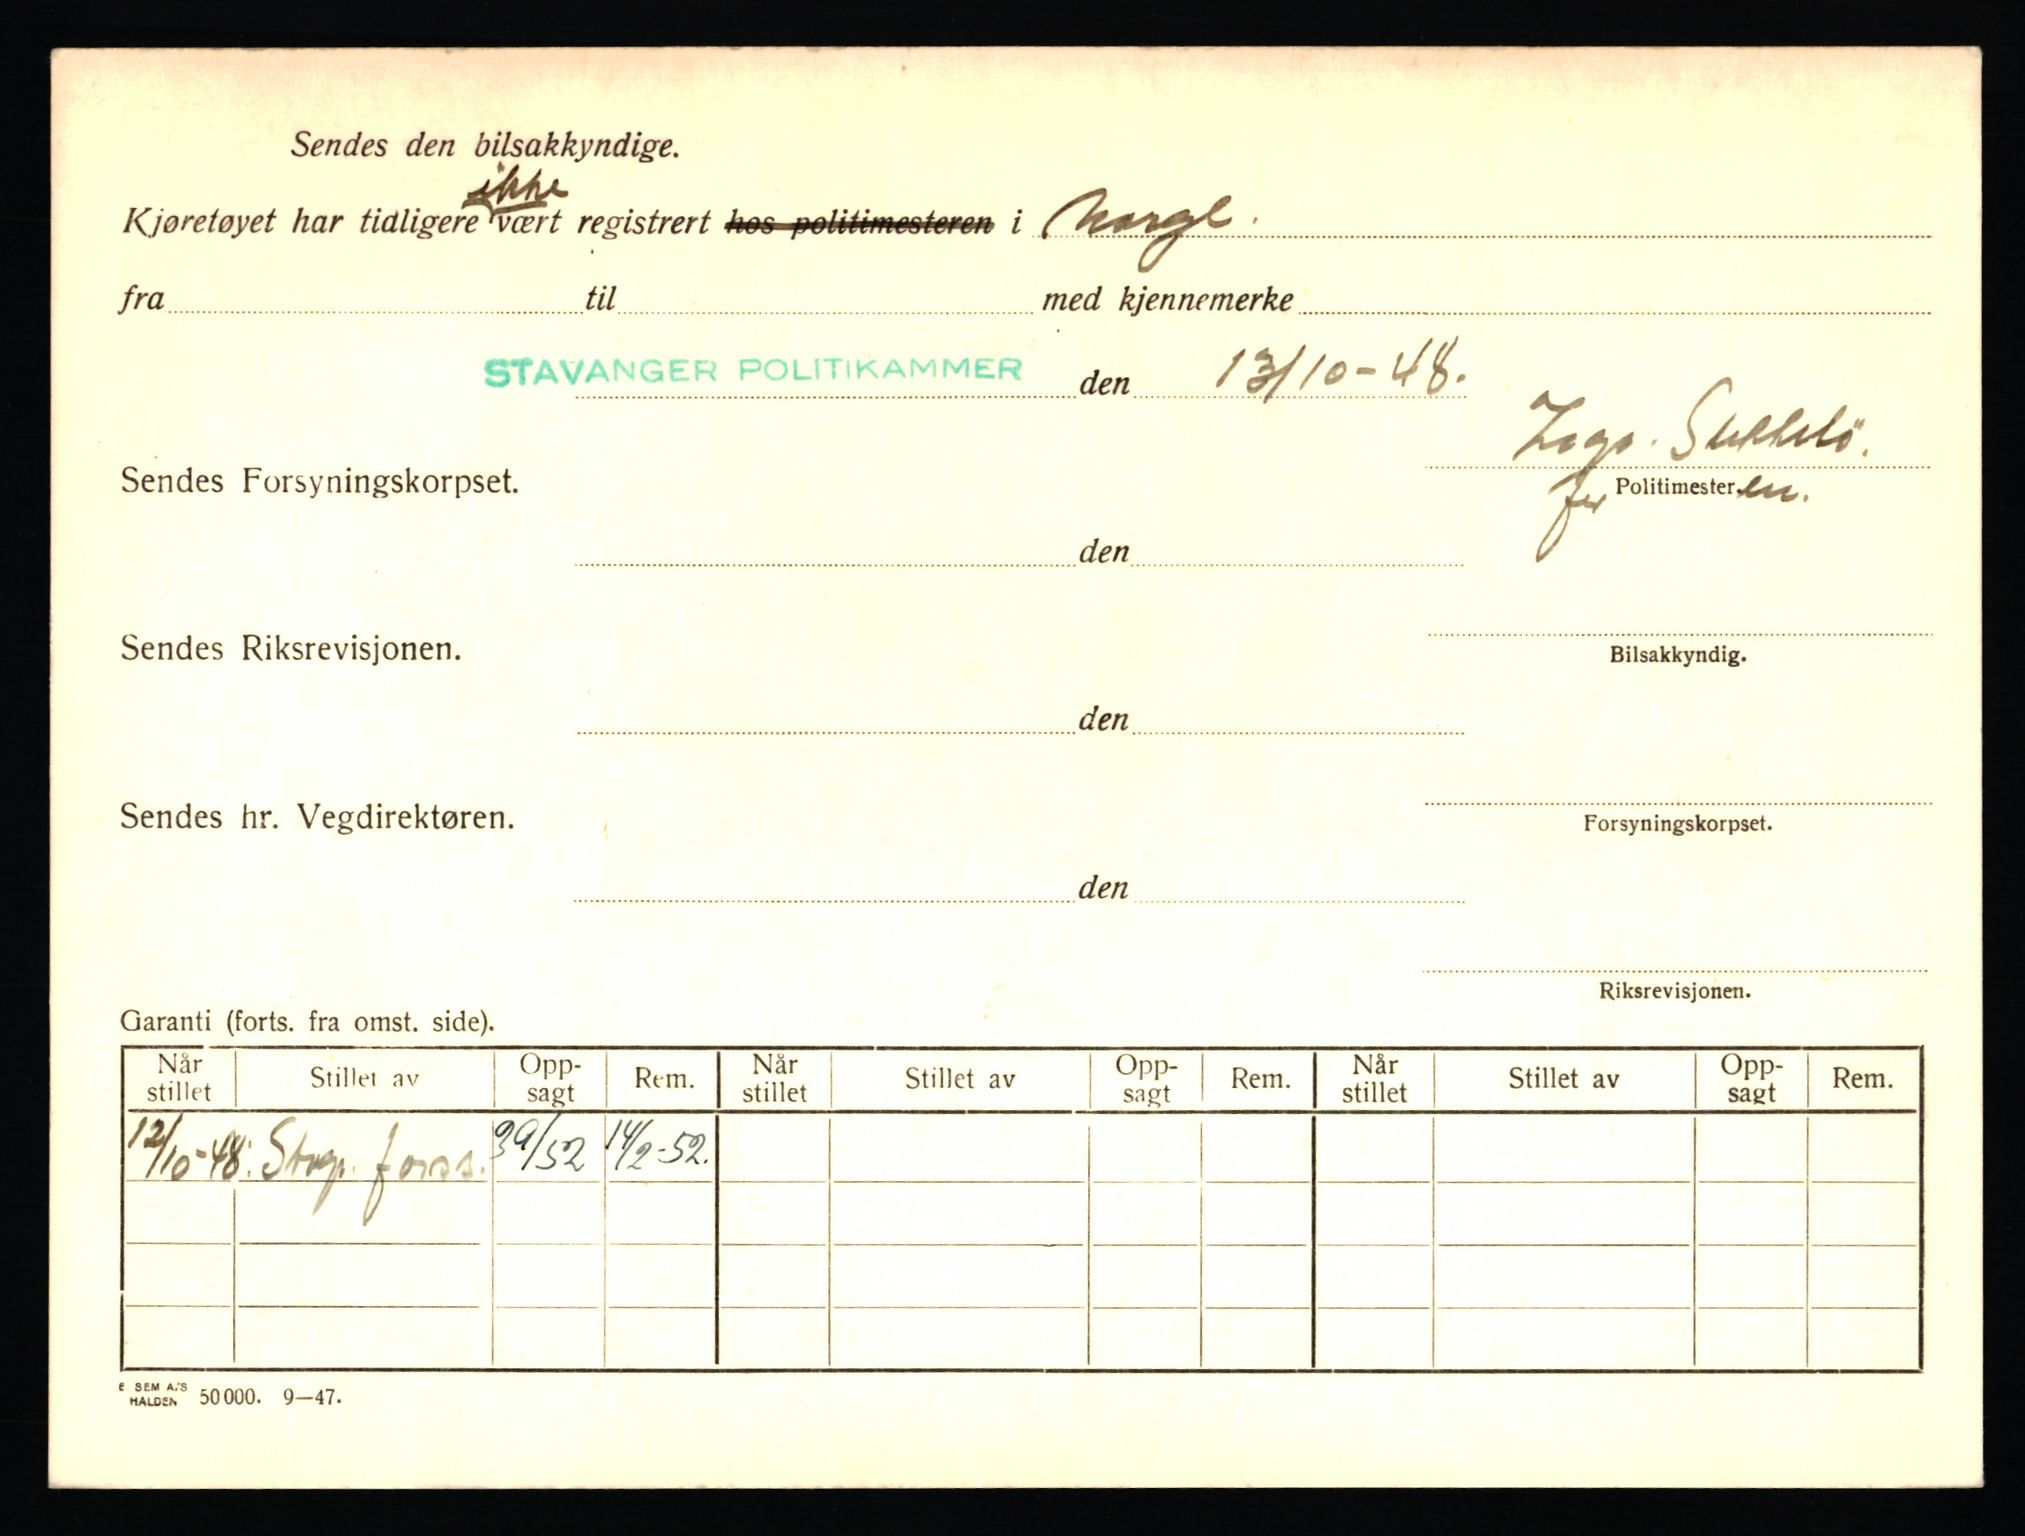 Sendes den bilsakkyndige.
ikke
Kjøretøyet har tidligere vært registrert hos politimesteren i Norge.
fra til med kjennemerke
STAVANGER POLITIKAMMER den 13/10-48.
Sendes Forsyningskorpset.
for Politimesteren.
den
Sendes Riksrevisjonen.
Bilsakkyndig.
den
Sendes hr. Vegdirektøren.
Forsyningskorpset.
den
Riksrevisjonen.
Garanti (forts. fra omst. side).
Når stillet Stillet av Opp-sagt Rem. Når stillet Stillet av Opp-sagt Rem. Når stillet Stillet av Opp-sagt Rem.
12/10-48. Stvgr. forss. 14/2-52.
E SEM A/S
HALDEN 50000. 9—47.